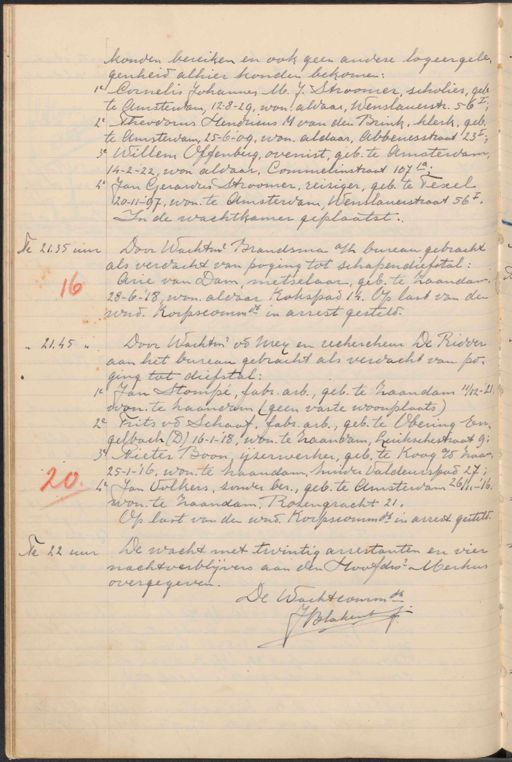 konden bereiken en ook geen andere logeergele,
genheid alhier konden bekomen:
1e Cornelis Johannes M. J. Stroomer, scholier, geb.
te Amsterdam, 12-8-29, won. aldaar, Wenslauerstr. 56 I,
2e Theodorus Hendricus H van den Brink, klerk, geb.
te Amsterdam, 25-6-09, won. aldaar, Abbenesstraat 23 I;
3e Willem Offenberg, ovenist, geb. te Amsterdam,
14-2-22, won aldaar, Commelinstraat 107 
4e Jan Gerardus Stroomer, reiziger, geb. te Texel
20-11-07, won. te Amsterdam, Wenslauerstraat 56 I.
In de wachtkamer geplaatst.
Te 21.35 uur Door Wachtmr Brandsma a/h bureau gebracht
als verdacht van poging tot schapendiefstal:
16 Arie van Dam, metselaar, geb. te Zaandam
28-6-18, won. aldaar Kokspad 14. Op last van den
wnd. Korpscommdt in arrest gesteld.
„ 21.45 „ Door Wachtmr vd Mey en rechercheur De Ridder
aan het bureau gebracht als verdacht van po,
ging tot diefstal:
1e Jan Stompé, fabr. arb., geb. te Zaandam 4/12-21,
won. te Zaandam (geen vaste woonplaats)
2e Frits vd Schaaf, fabr. arb., geb. te Obering En,
gelbach (D) 16-1-18, won. te Zaandam, straat 9;
3e Pieter Boon, ijzerwerker, geb. te Koog a/d Zaan,
25-1-'16, won. te Zaandam, 27;
20. 4e Jan Volkers, zonder ber., geb. te Amsterdam 26/11-'16.
won. te Zaandam, Rozengracht 21.
Op last van den wnd. Korpscommdt in arrest gesteld.
Te 22 uur De wacht met twintig arrestanten en vier
nachtverblijvers aan den Hoofdwr. Merkus
overgegeven.
De Wachtcommdt